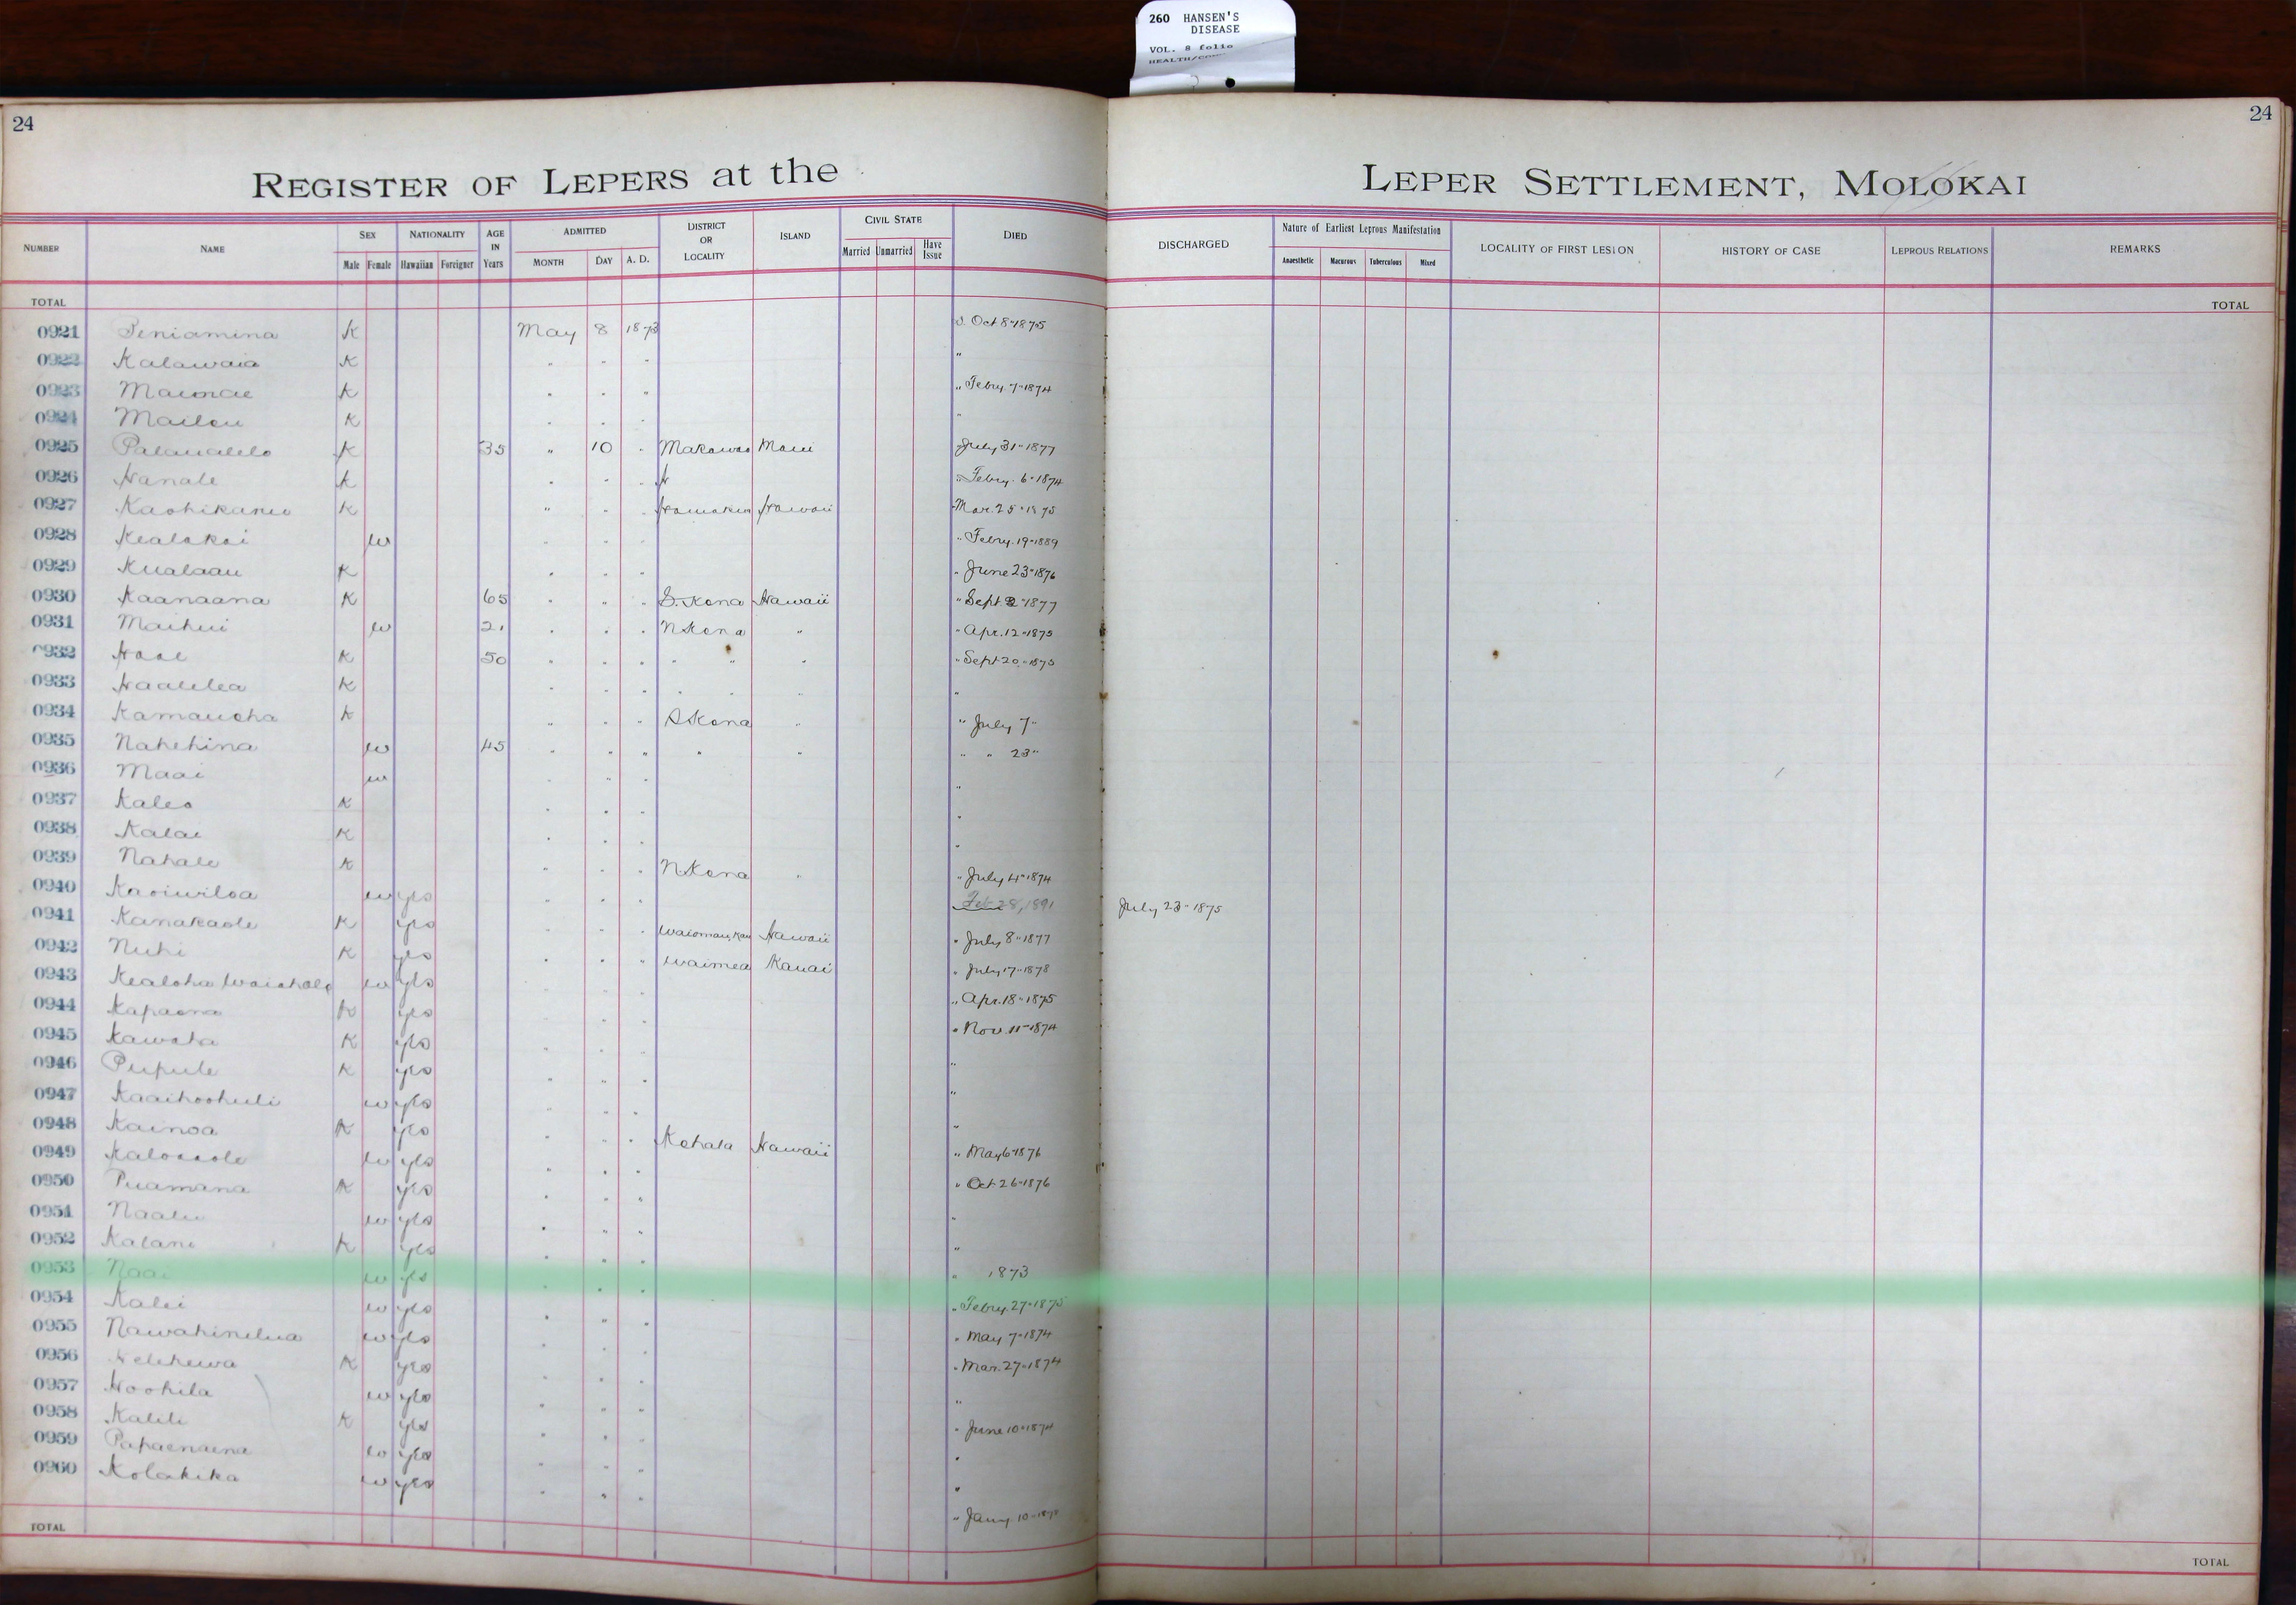 260 HANSEN'S
DISEASE
VOL. 8 folio
24
24
REGISTER OF LEPERS at the LEPER SETTLEMENT, MOLOKAI
NUMBER NAME SEX NATIONALITY AGE IN Years ADMITTED DISTRICT OR LOCALITY ISLAND CIVIL STATE DIED DISCHARGED Nature of Earliest Leprous Manifestation LOCALITY OF FIRST LESION HISTORY OF CASE LEPROUS RELATIONS REMARKS
Male Female Hawaiian Foreigner MONTH DAY A. D. Married Unmarried Have Issue Anaesthetic Macurous Tuberculous Mixed
TOTAL TOTAL
0921 Peniamina K May 8 1873 d. Oct 8 " 1875
0922 Kalawaia K " " " "
0923 K " " " " Febry. 7 " 1874
0924 Mailou K " " " "
0925 K 35 " 10 " Makawao Maui July 31 " 1877
0926 Hanale K " " " H " Febry. 6 " 1874
0927 Kaohikanu K " " " Hamakua Hawaii Mar. 25 " 1875
0928 Kealakai w " " " " Febry. 19 " 1889
0929 Kualaau K " " " " June 23 " 1876
0930 Kaanaana K 65 " " " S. Kona Hawaii " Sept 2 " 1877
0931 Maihui w 21 " " " N Kona " " Apr. 12 " 1875
0932 K 50 " " " " " " " Sept 20 " 1875
0933 Haalilea K " " " " " " "
0934 Kamauoha K " " " S Kona " " July 7 "
0935 Nahehina w 45 " " " " " " " 23 "
0936 Maai w " " " "
0937 Kaleo K " " " "
0938 Kalai K " " " "
0939 Nahale K " " " N Kona " " July 4 " 1874
0940 Kaoiwiloa w yes " " " Feb 28, 1891 July 23 " 1875
0941 Kanakaole K yes " " " Hawaii " July 8 " 1877
0942 Nuhi K yes " " " Waimea Kauai " July 17 " 1878
0943 Kealoha Waiahole w yes " " " " Apr. 18 " 1875
0944 Kapaona K yes " " " " Nov. 11 " 1874
0945 Kawaha K yes " " " "
0946 Pupule K yes " " " "
0947 Kaaihoohuli w yes " " " "
0948 Kainoa K yes " " " Kohala Hawaii " May 6 " 1876
0949 w yes " " " " Oct 26 " 1876
0950 Puamana K yes " " " "
0951 Naalu w yes " " " "
0952 Kalani K yes " " " " 1873
0953 Naai w yes " " " " Febry. 27 " 1875
0954 Kalei w yes " " " " May 7 " 1874
0955 Nawahinelua w yes " " " " Mar. 27 " 1874
0956 Kelehewa K yes " " " "
0957 Hoohila w yes " " " " June 10 " 1874
0958 Kalili K yes " " " "
0959 Papaenaena w yes " " " "
0960 Kolakika w yes " " " " Jany. 10 "
TOTAL TOTAL